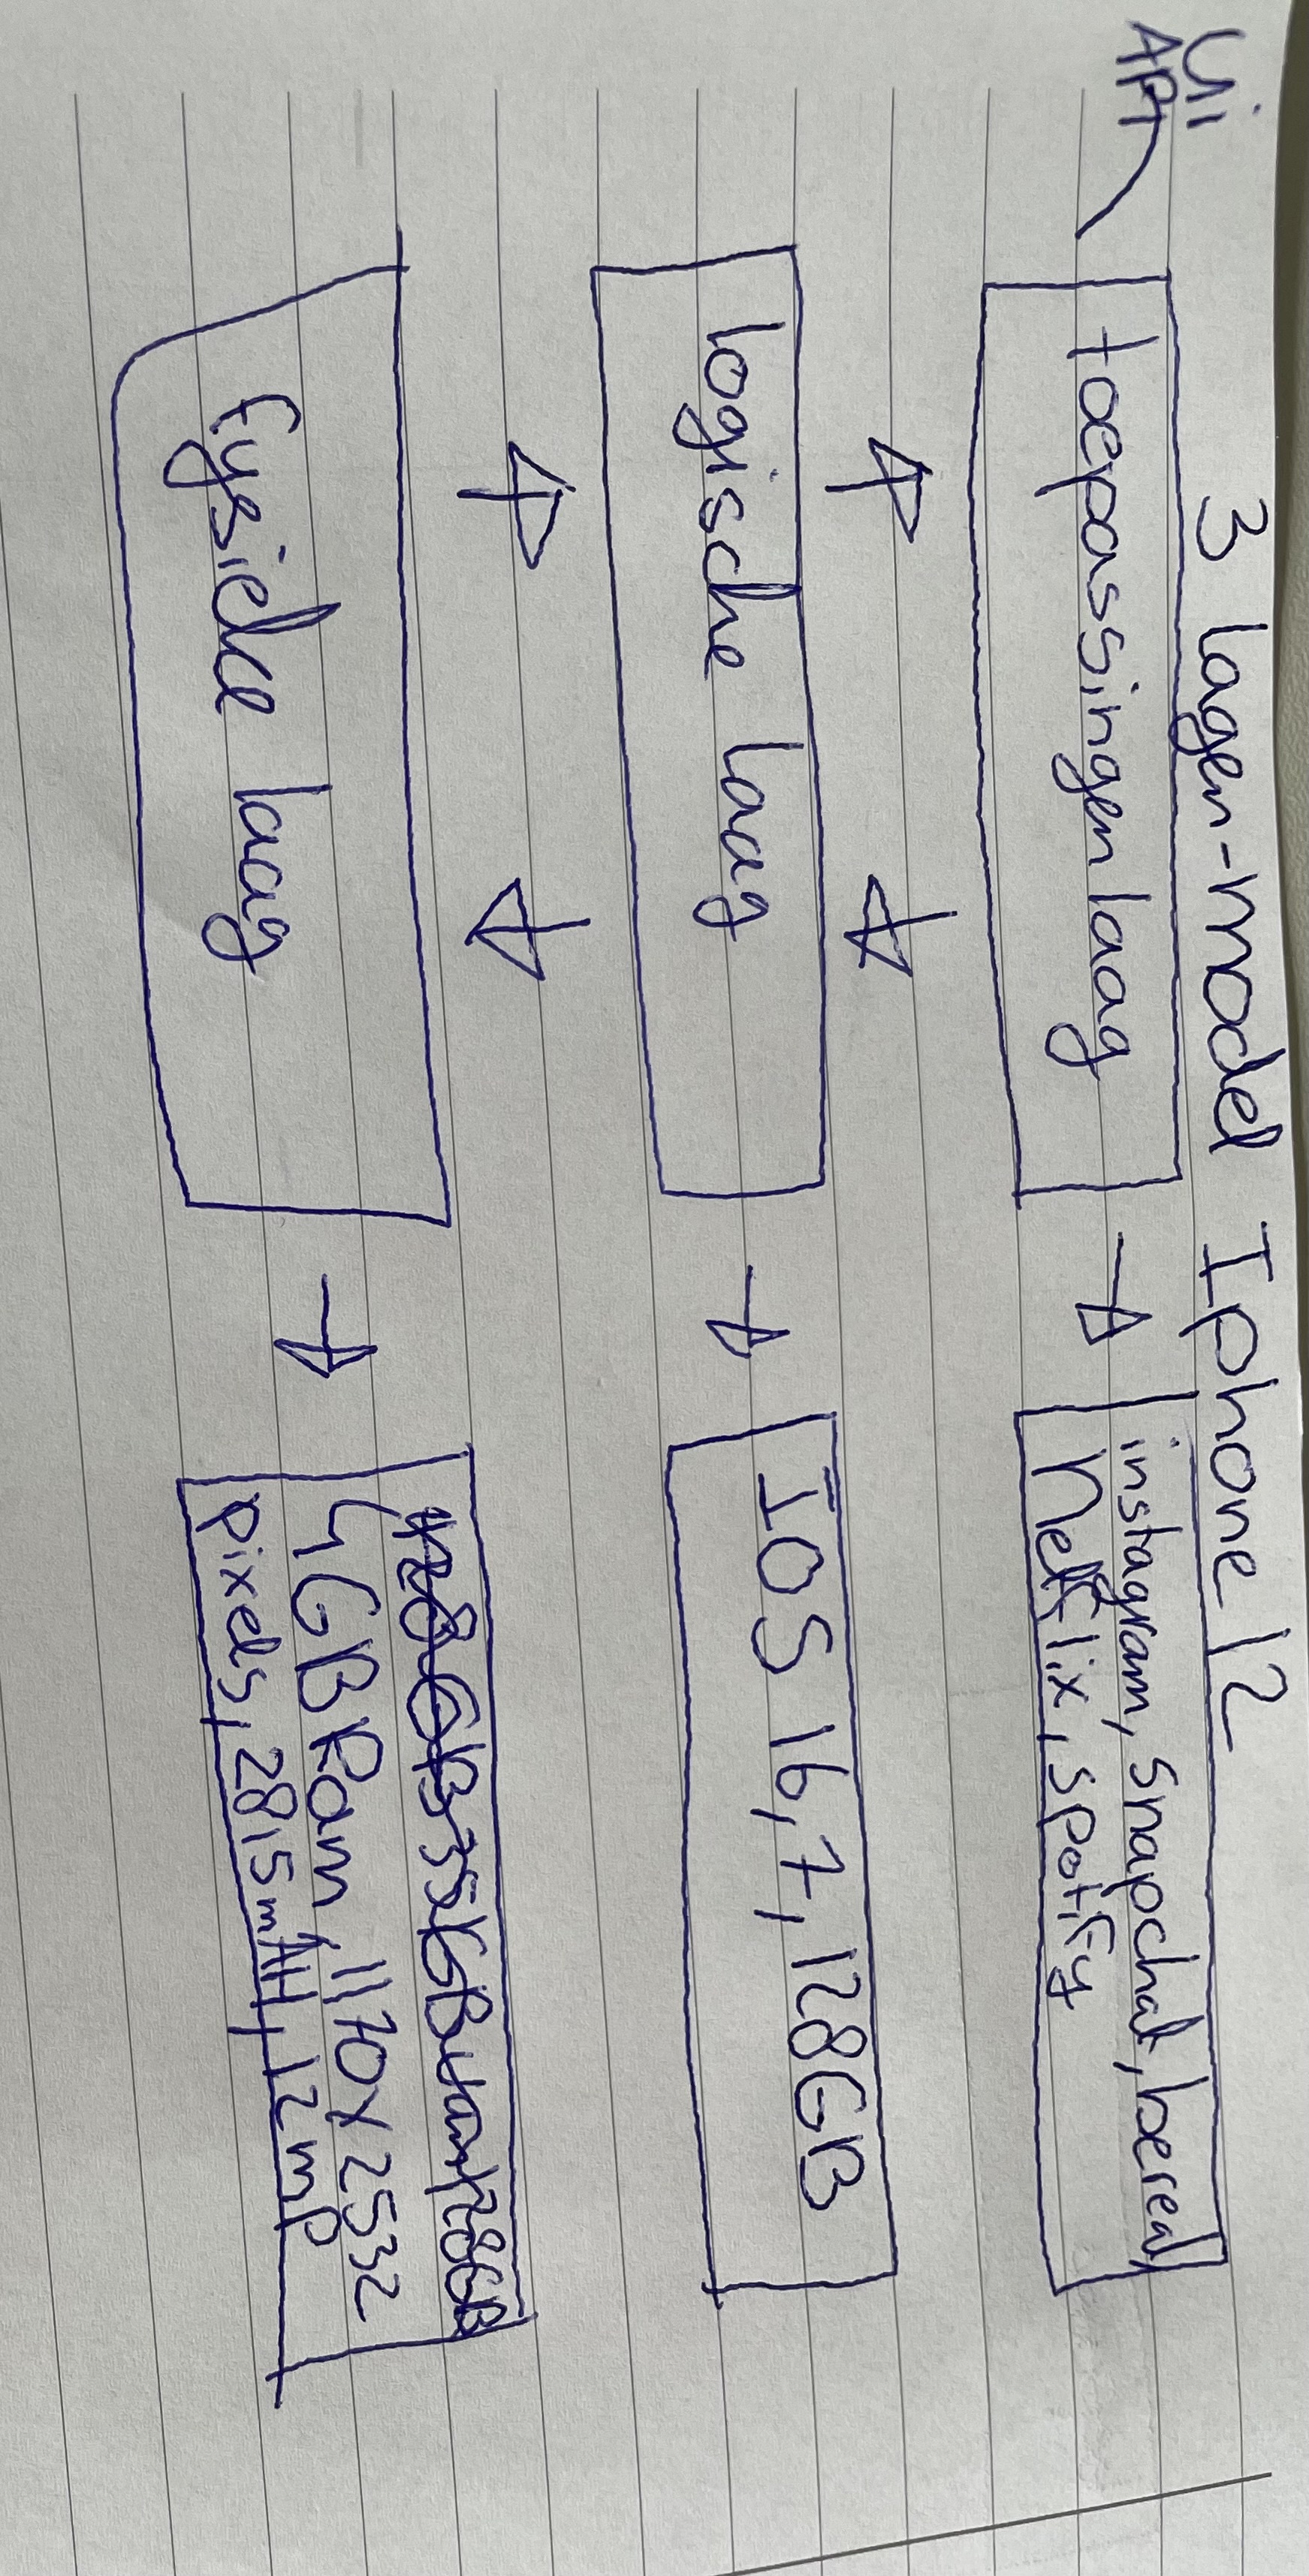 3 lagen-model Iphone 12
Ui
API
toepassingen laag
instagram, snapchat, bereal,
netflix, spotify
logische laag
IOS 16,7, 128GB
fysieke laag
4GB Ram, 1170x2532
pixels, 2815mAH, 12mp